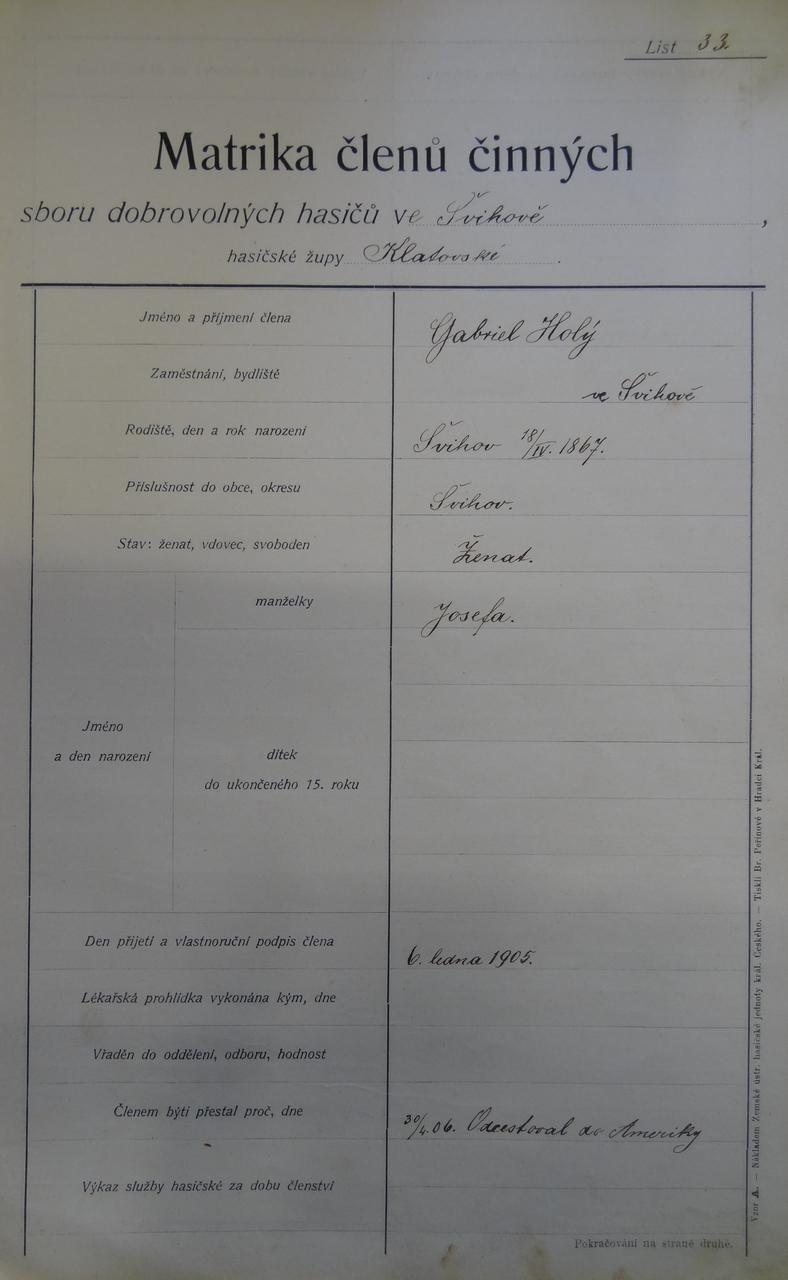 List 33.
Matrika členů činných
sboru dobrovolných hasičů ve Švihově,
hasičské župy Klatovské.
Jméno a příjmení člena Gabriel Holý
Zaměstnání, bydliště ve Švihově
Rodiště, den a rok narození Švihov 18/IV. 1867.
Příslušnost do obce, okresu Švihov.
Stav: ženat, vdovec, svoboden Ženat.
manželky Josefa.
Jméno
a den narození
dítek
do ukončeného 15. roku
Den přijetí a vlastnoruční podpis člena 6. ledna 1905.
Lékařská prohlídka vykonána kým, dne
Vřaděn do oddělení, odboru, hodnost
Členem býti přestal proč, dne 30/4. 06. Odcestoval do Ameriky
Výkaz služby hasičské za dobu členství
Pokračování na straně druhé.
Vzor A. — Nákladem Zemské ústř. hasičské jednoty král. Českého. — Tiskli Br. Peřinové v Hradci Král.